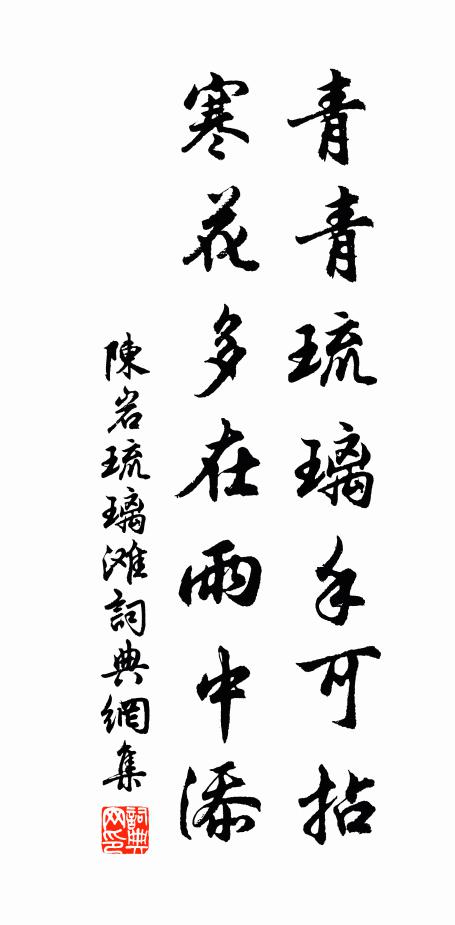 青青琉璃手可拈
寒花多在雨中添
陳岩琉璃滩詞典網集
詞典網印